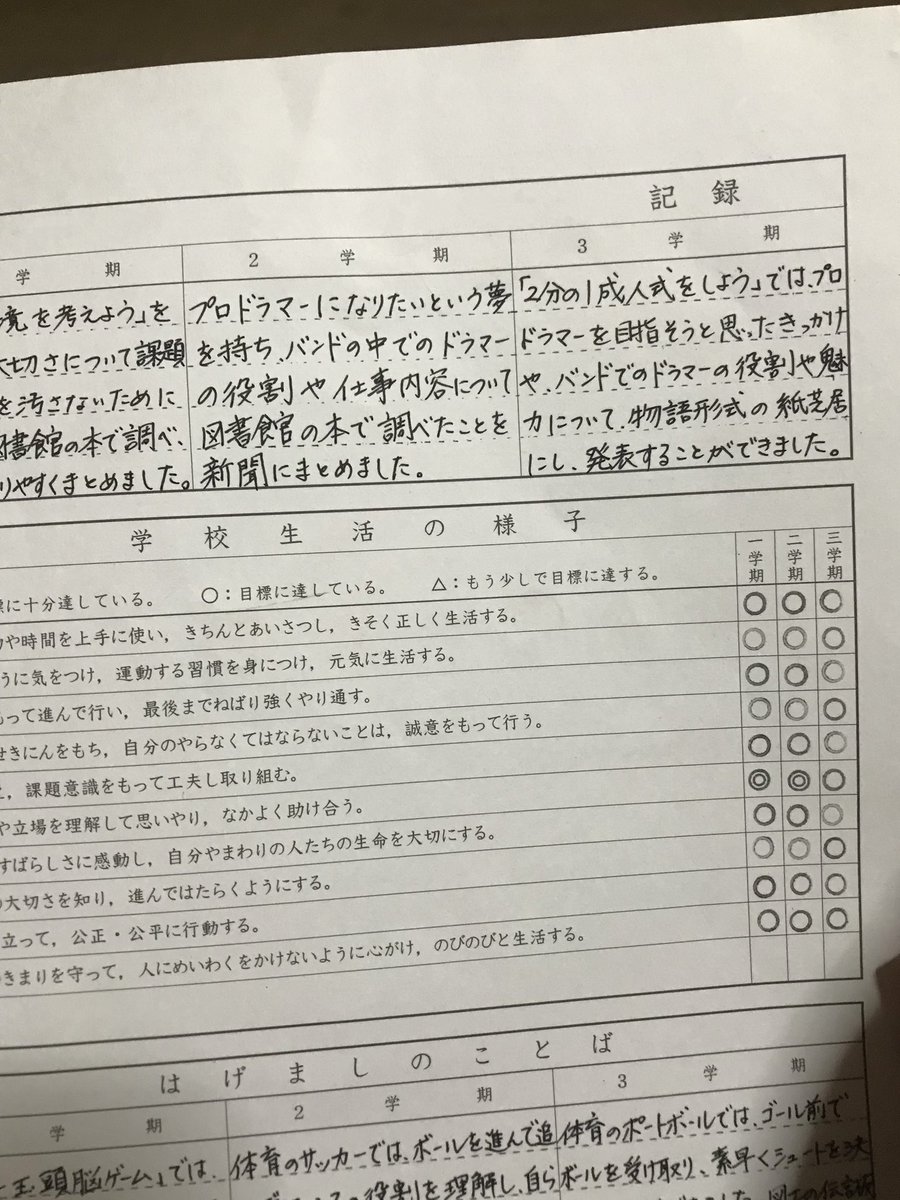 記録
学期
2学期
3学期
境を考えよう」を
大切さについて課題
を汚さないために
図書館の本で調べ、
りやすくまとめました。
プロドラマーになりたいという夢
を持ち、バンドの中でのドラマー
の役割や仕事内容について
図書館の本で調べたことを
新聞にまとめました。
「2分の1成人式をしよう」では、プロ
ドラマーを目指そうと思ったきっかけ
や、バンドでのドラマーの役割や魅
力について、物語形式の紙芝居
にし、発表することができました。
学校生活の様子
一学期
二学期
三学期
標に十分達している。 ○：目標に達している。 △：もう少しで目標に達する。
や時間を上手に使い，きちんとあいさつし，きそく正しく生活する。
うに気をつけ，運動する習慣を身につけ，元気に生活する。
もって進んで行い，最後までねばり強くやり通す。
せきにんをもち，自分のやらなくてはならないことは，誠意をもって行う。
，課題意識をもって工夫し取り組む。
や立場を理解して思いやり，なかよく助け合う。
すばらしさに感動し，自分やまわりの人たちの生命を大切にする。
の大切さを知り，進んではたらくようにする。
立って，公正・公平に行動する。
のきまりを守って，人にめいわくをかけないように心がけ，のびのびと生活する。
はげましのことば
学期
2学期
3学期
王頭脳ゲーム」では、
体育のサッカーでは、ボールを進んで追
の役割を理解し、自ら
体育のポートボールでは、ゴール前で
ボールを受け取り、素早くシュートを決